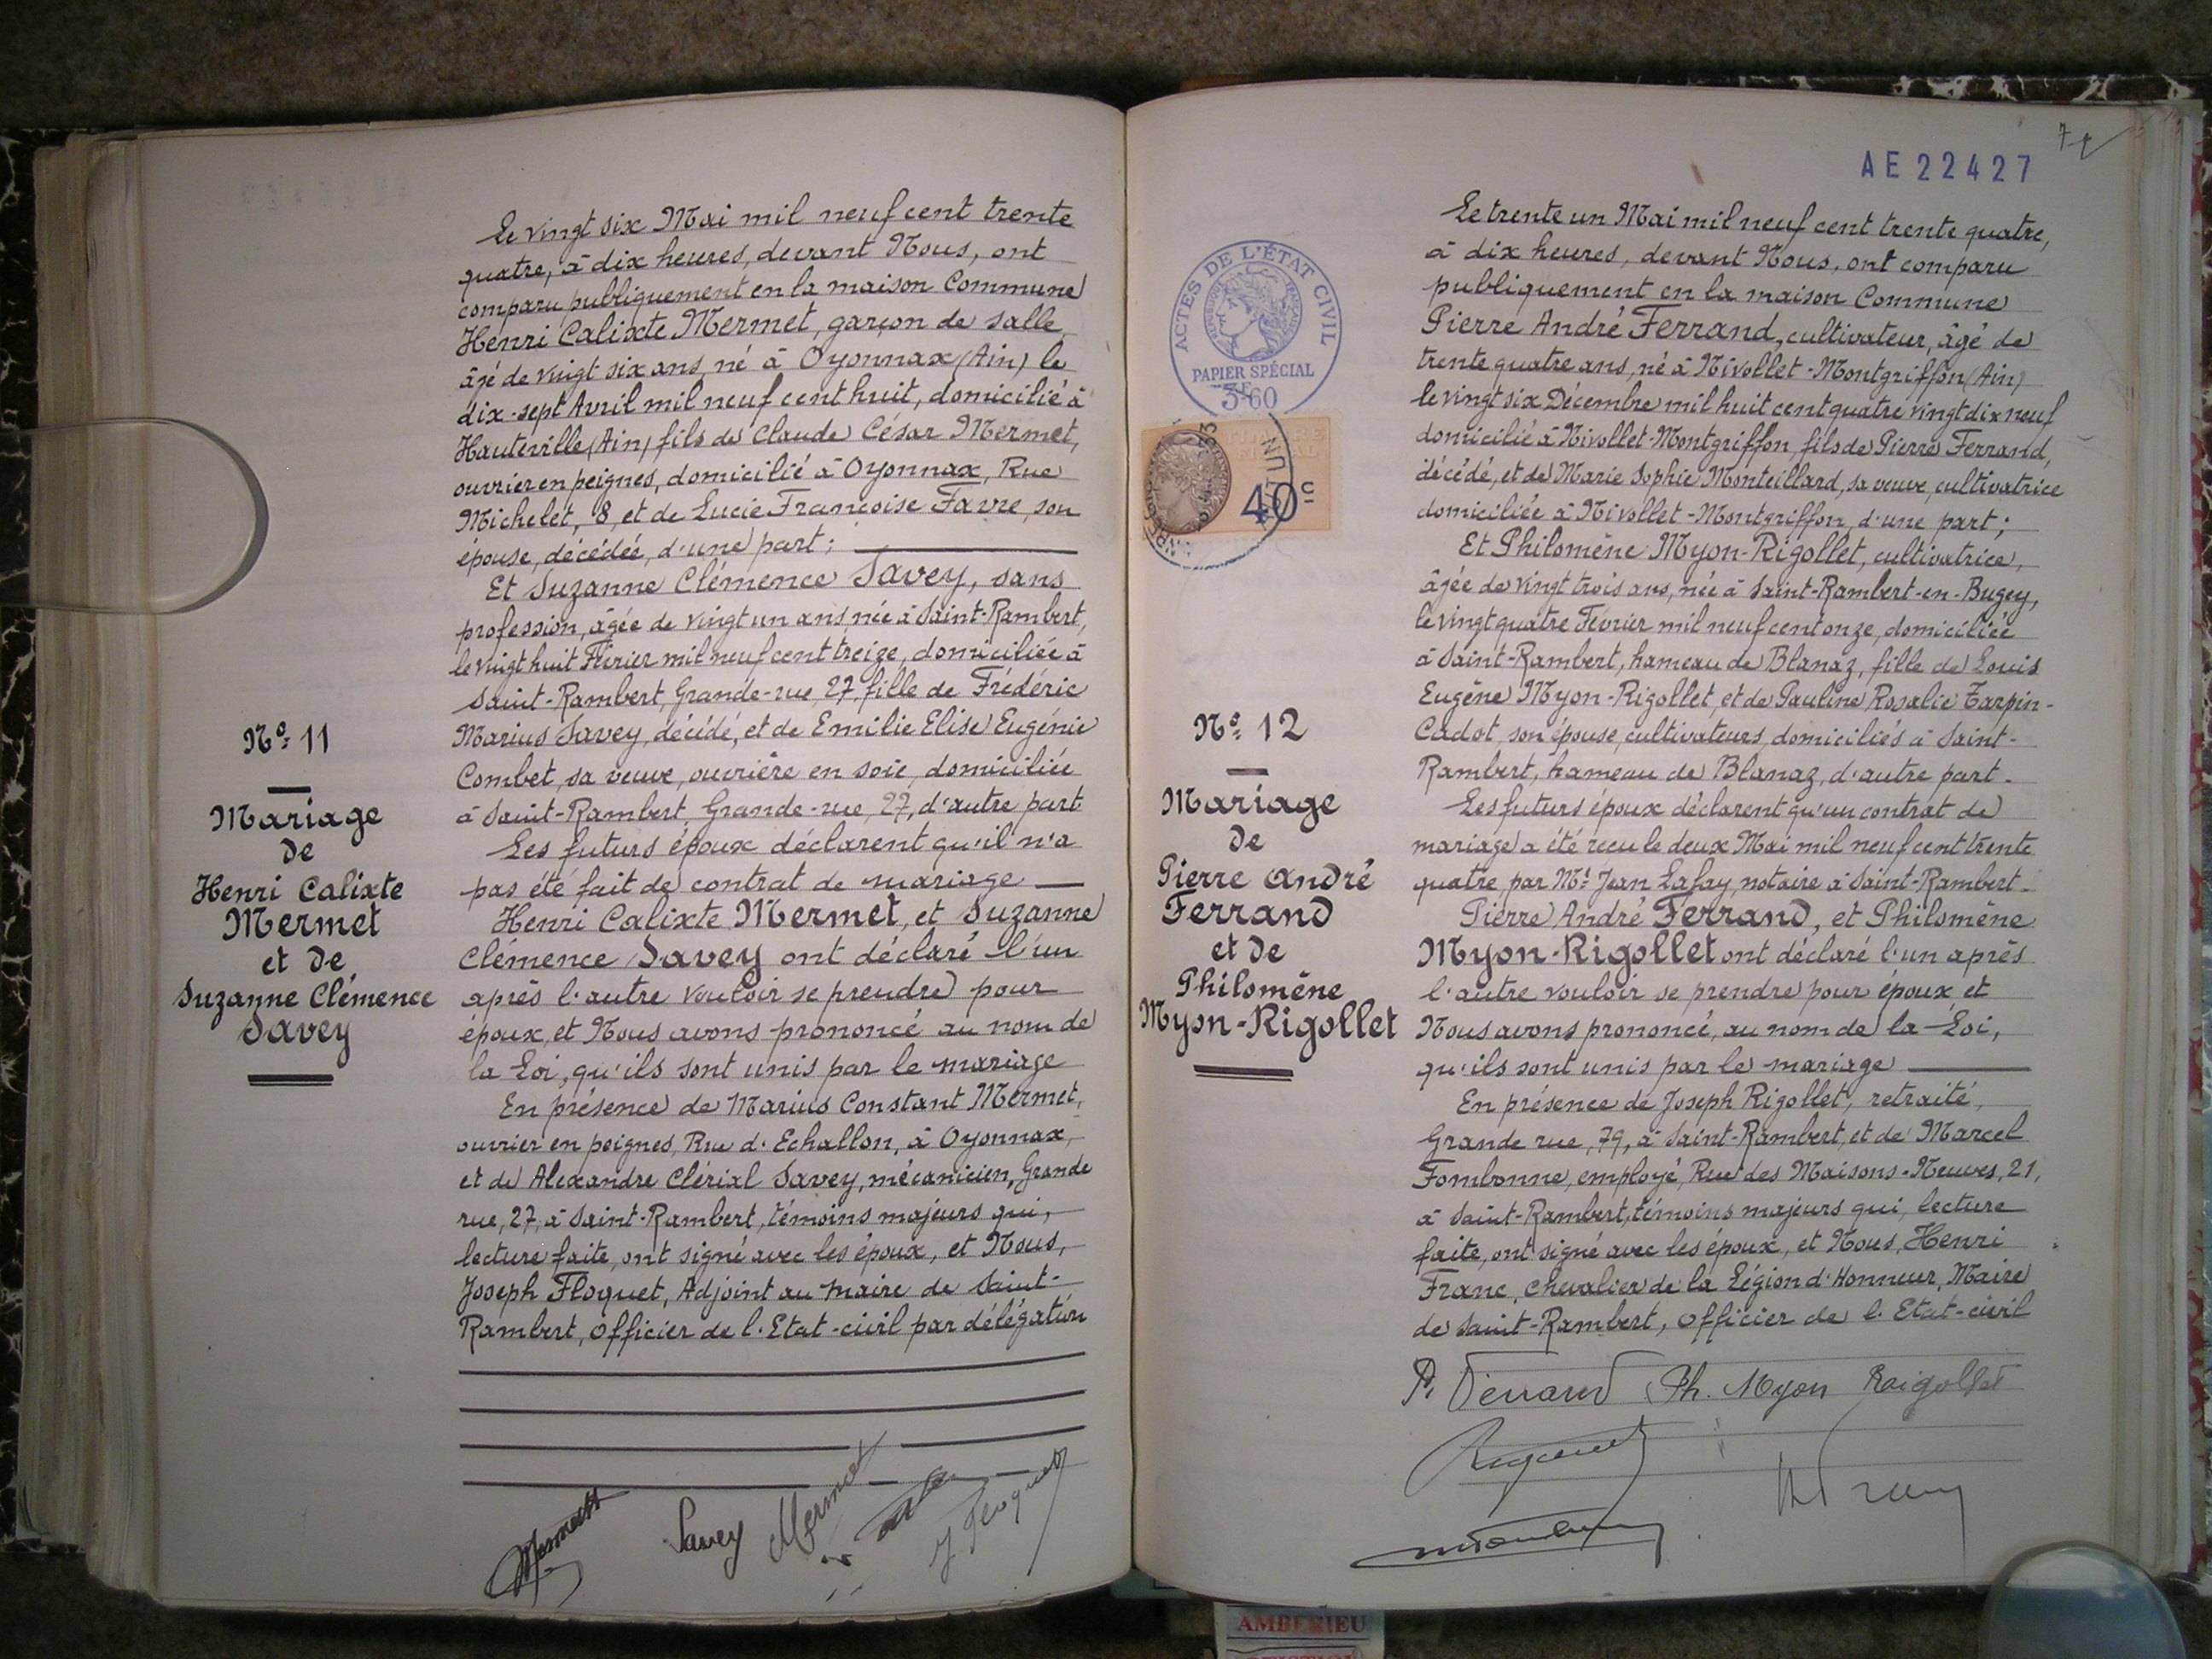 Le vingt six Mai mil neuf cent trente
quatre, à dix heures, devant Nous, ont
comparu publiquement en la maison Commune
Henri Calixte Mermet, garçon de salle
âgé de vingt six ans, né à Oyonnax (Ain) le
dix-sept Avril mil neuf cent huit, domicilié à
Hauteville (Ain) fils de Claude César Mermet,
ouvrier en peignes, domicilié à Oyonnax, Rue
Michelet, 8, et de Lucie Françoise Favre, son
épouse, décédée, d'une part;
Et Suzanne Clémence Savey, sans
profession, âgée de vingt un ans, née à Saint-Rambert,
le vingt huit Février mil neuf cent treize, domiciliée à
Saint-Rambert, Grande-rue, 27, fille de Frédéric
Marius Savey, décédé, et de Emilie Elise Eugénie
Combet, sa veuve, ouvrière en soie, domiciliée
à Saint-Rambert, Grande-rue, 27, d'autre part.
Les futurs époux déclarent qu'il n'a
pas été fait de contrat de mariage
Henri Calixte Mermet, et Suzanne
Clémence Savey ont déclaré l'un
après l'autre vouloir se prendre pour
époux et Nous avons prononcé au nom de
la Loi, qu'ils sont unis par le mariage
En présence de Marius Constant Mermet,
ouvrier en peignes, Rue d'Echallon, à Oyonnax,
et de Alexandre Clérial Savey, mécanicien, Grande
rue, 27, à Saint-Rambert, témoins majeurs qui,
lecture faite, ont signé avec les époux, et Nous,
Joseph Floquet, Adjoint au maire de Saint-
Rambert, Officier de l'Etat-civil par délégation
Savey Mermet
J Floquet
No 11
Mariage
de
Henri Calixte
Mermet
et de
Suzanne Clémence
Savey
AE 22427
ACTES DE L'ÉTAT CIVIL
PAPIER SPÉCIAL
3F60
40c
No 12
Mariage
de
Pierre André
Ferrand
et de
Philomène
Myon-Rigollet
Le trente un Mai mil neuf cent trente quatre,
à dix heures, devant Nous, ont comparu
publiquement en la maison Commune
Pierre André Ferrand, cultivateur, âgé de
trente quatre ans, né à Nivollet-Montgriffon (Ain)
le vingt six Décembre mil huit cent quatre vingt dix neuf
domicilié à Nivollet-Montgriffon, fils de Pierre Ferrand,
décédé, et de Marie Sophie Monteillard, sa veuve, cultivatrice
domiciliée à Nivollet-Montgriffon, d'une part;
Et Philomène Myon-Rigollet, cultivatrice,
âgée de vingt trois ans, née à Saint-Rambert-en-Bugey,
le vingt quatre Février mil neuf cent onze, domiciliée
à Saint-Rambert, hameau de Blanaz, fille de Louis
Eugène Myon-Rigollet, et de Pauline Rosalie Tarpin-
Cadot, son épouse, cultivateurs, domiciliés à Saint-
Rambert, hameau de Blanaz, d'autre part.
Les futurs époux déclarent qu'un contrat de
mariage a été reçu le deux Mai mil neuf cent trente
quatre par Me Jean Lafay, notaire à Saint-Rambert.
Pierre André Ferrand, et Philomène
Myon-Rigollet ont déclaré l'un après
l'autre vouloir se prendre pour époux et
Nous avons prononcé, au nom de la Loi,
qu'ils sont unis par le mariage
En présence de Joseph Rigollet, retraité,
Grande rue, 79, à Saint-Rambert, et de Marcel
Fombonne, employé, Rue des Maisons-Neuves, 21,
à Saint-Rambert, témoins majeurs qui, lecture
faite, ont signé avec les époux, et Nous, Henri
Franc, Chevalier de la Légion d'Honneur, Maire
de Saint-Rambert, Officier de l'Etat-civil
P. Ferrand Ph. Myon Rigollet
AMBERIEU